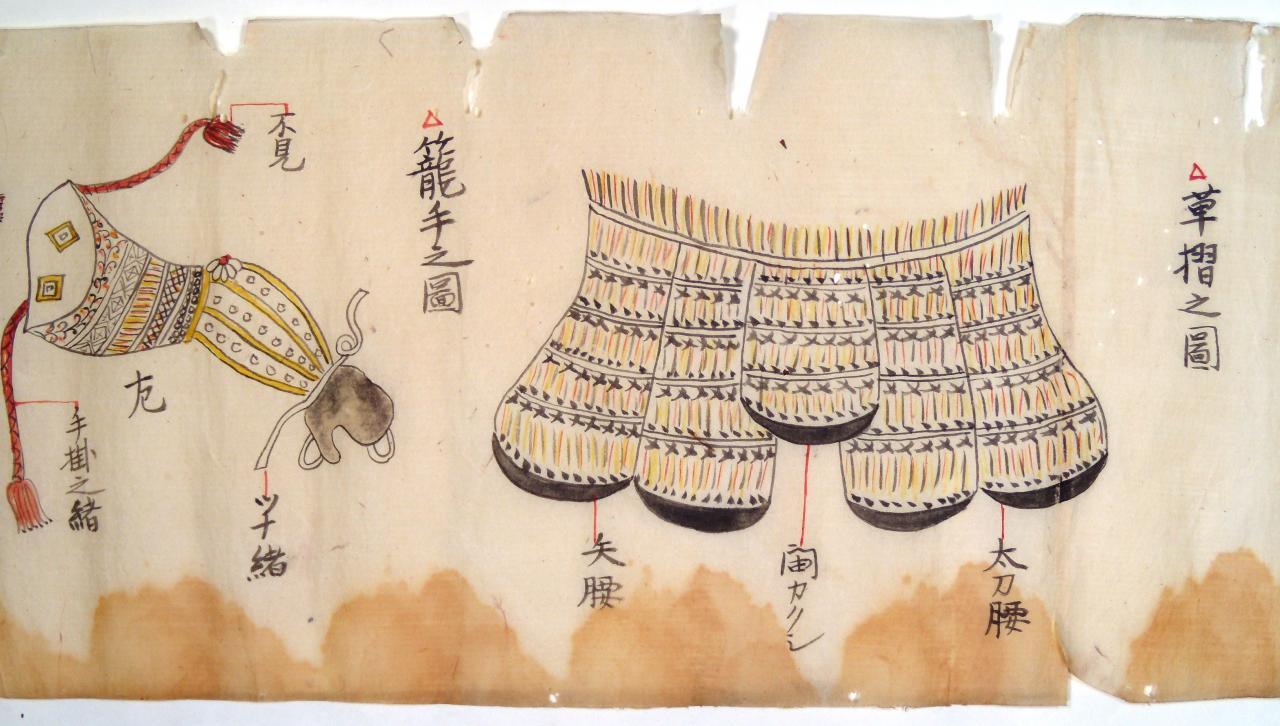 △草摺之圖
太刀腰
カクシ
矢腰
△籠手之圖
不見
ツナ緒
左
手掛之緒